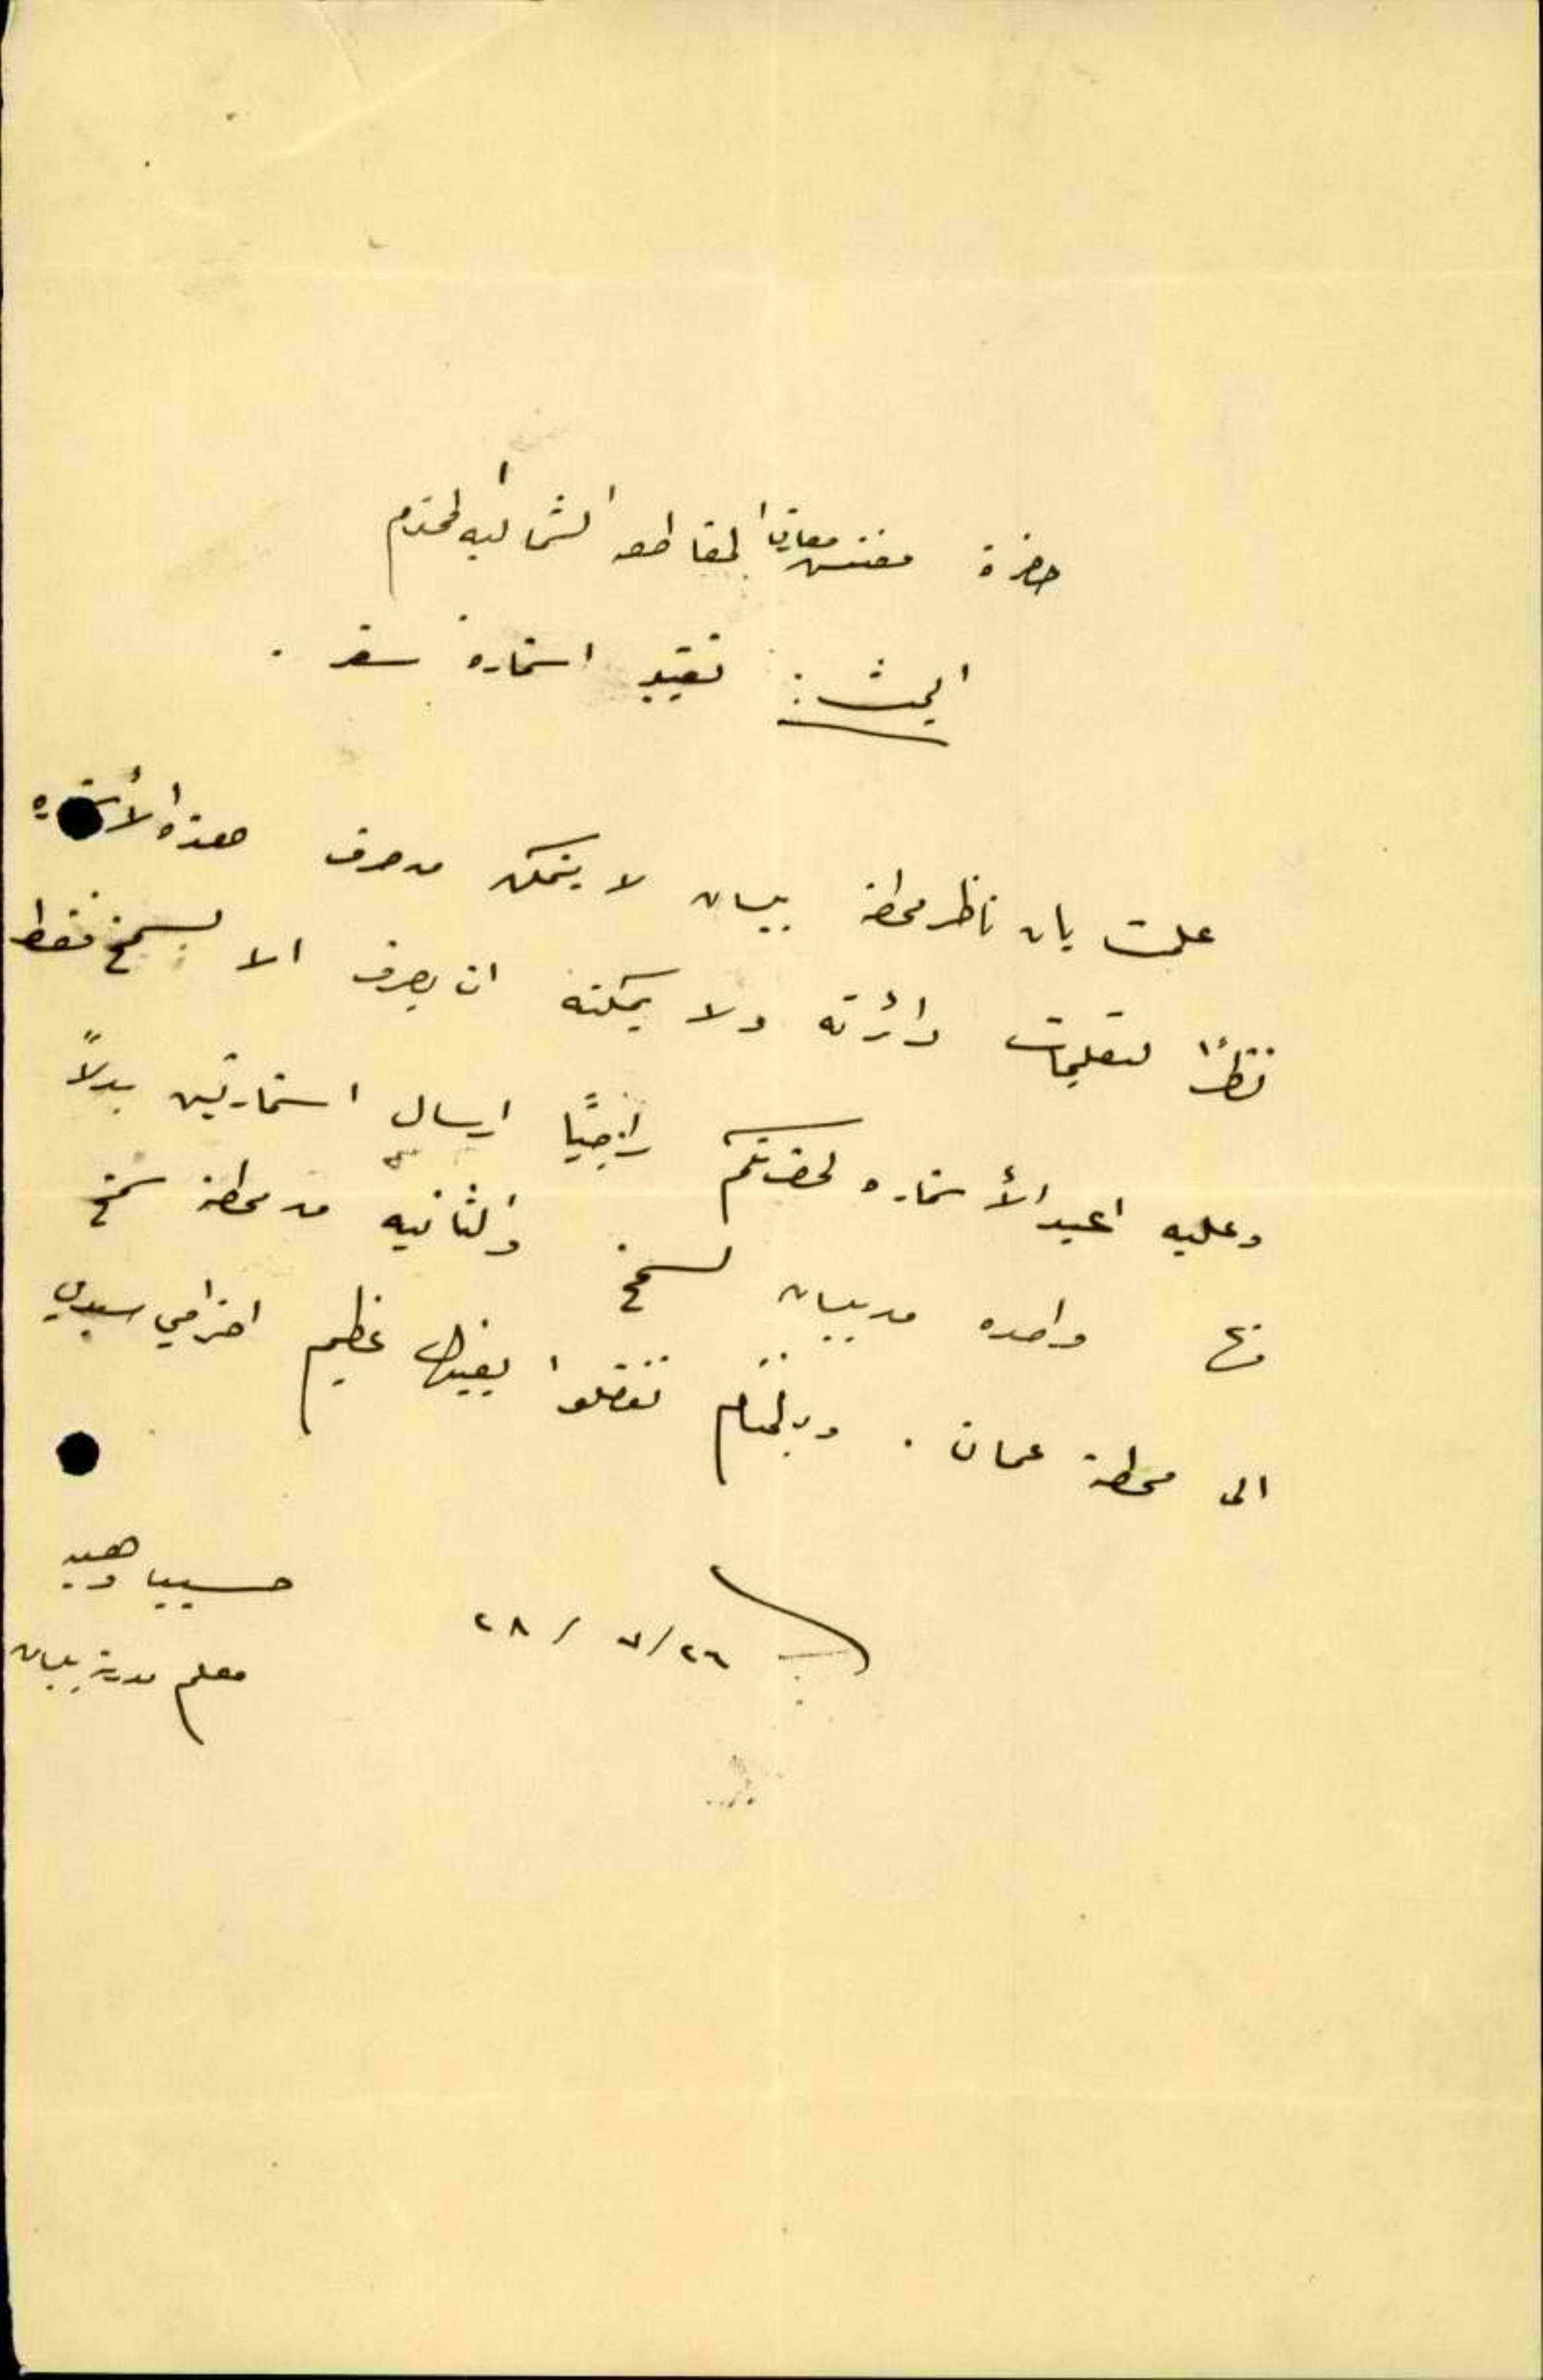 حضرة مفتش معارف المقاطعه الشماليه المحترم
البحث: تغيير استمارة سفر .
علمت بان ناظر محطة بيسان لا يتمكن من صرف هذه الأستماره
نظرًا لتعليمات دائرته ولا يمكنه ان يصرف الا لسمخ فقط
وعليه اعيد الأستماره لحضرتكم راجيًا ارسال استمارتين بدلاً
منها واحده من بيسان لسمخ والثانيه من محطة سمخ
الى محطة عمان . وبالختام تفضلوا بقبول عظيم احترامي سيدي
٢٨ / ٧/٢٦
معلم مدرسة بيسان